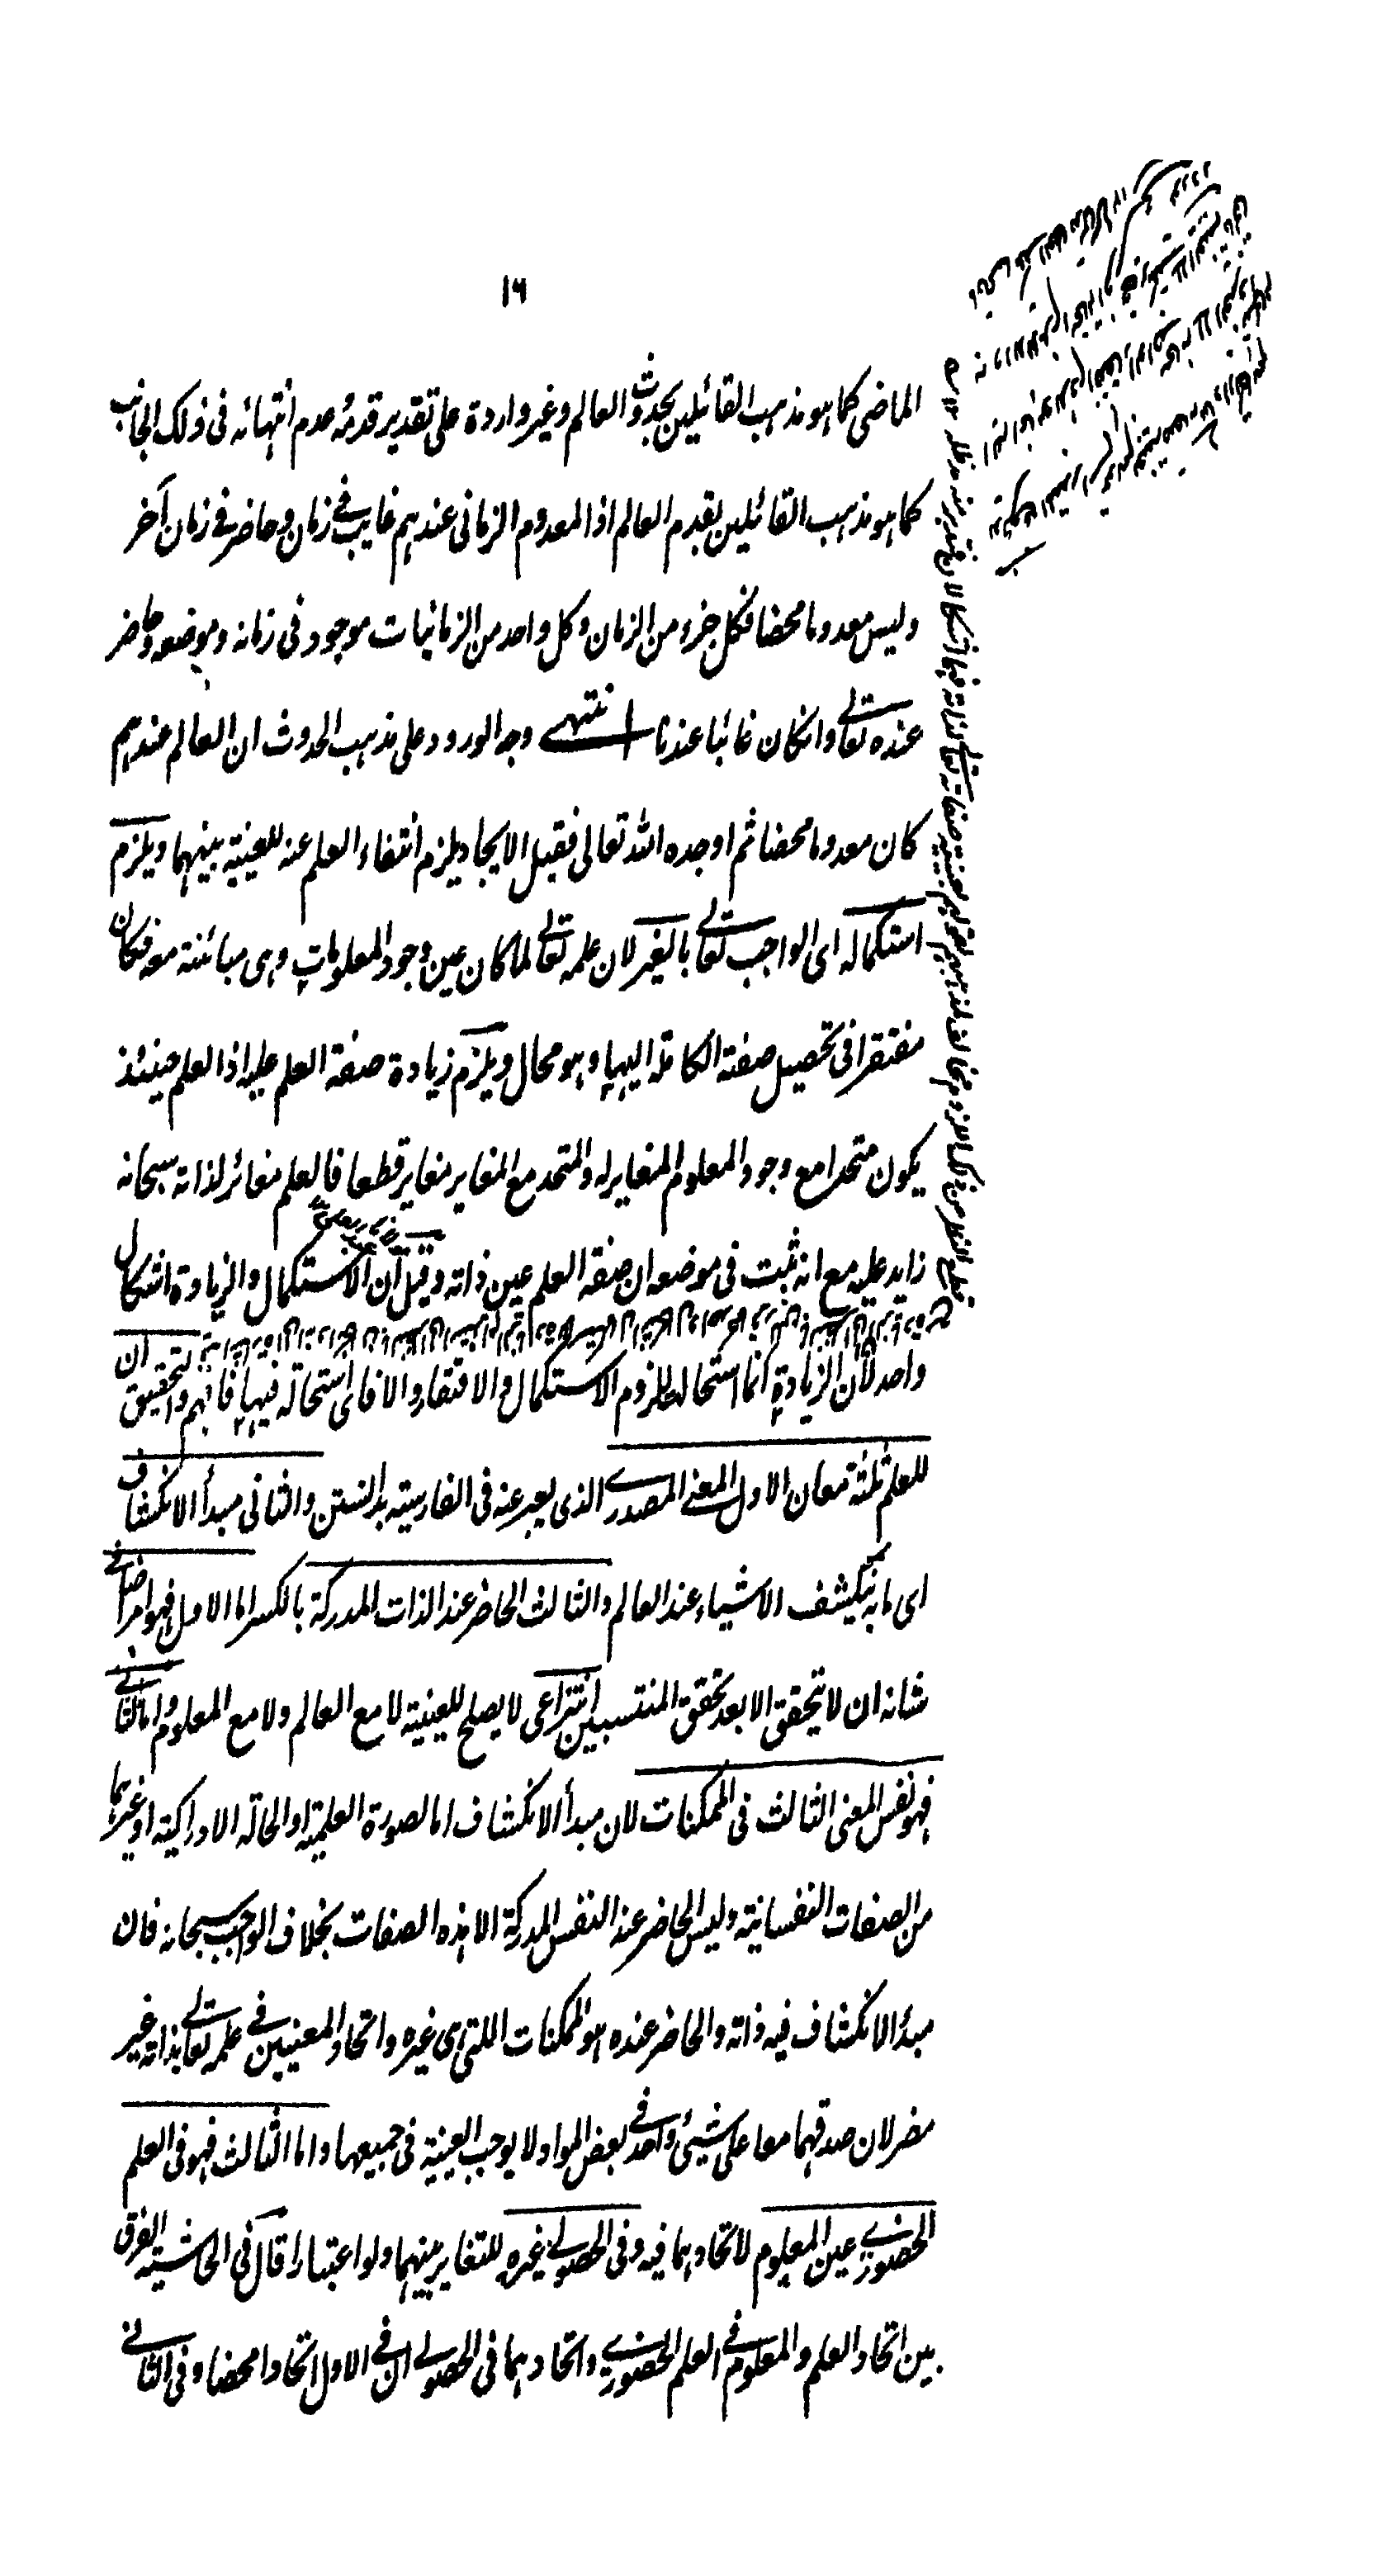 ١٦
الماضى كما هو مذهب القائلين بحدوث العالم وغير واردة على تقدير قدمه عدم انتهائه فى ذلك الجانب
كما هو مذهب القائلين بقدم العالم اذ المعدوم الزمانى عندهم غايب فى زمان وحاضر فى زمان آخر
وليس معدوما محضا فكل جزء من الزمان وكل واحد من الزمانيات موجود فى زمانه وموضعه وحاضر
عنده تعالى وانكان غائبا عندنا انتهى وجه الورود على مذهب الحدوث ان العالم عندهم
كان معدوما محضا ثم اوجده الله تعالى فقبل الايجاد يلزم انتفاء العلم عنه للعينية بينهما ويلزم
استكماله اى الواجب تعالى بالغير لان علمه تعالى لما كان عين وجود المعلومات وهى مبائنة معه فكان
مفتقرا فى تحصيل صفته الكاملة اليها وهو محال ويلزم زيادة صفة العلم عليه اذ العلم حينئذ
يكون متحدا مع وجود المعلوم المغاير له والمتحد مع المغاير مغاير قطعا فالعلم مغائر لذاته سبحانه
زايد عليه مع انه ثبت فى موضعه ان صفة العلم عين ذاته وقيل ان الاستكمال والزيادة اشكال
واحد لان الزيادة انما استحالة للزوم الاستكمال والافتقار والا فاى استحالة فيها فافهم والتحقيق ان
للعلم ثلثة معان الاول المعنى المصدرى الذى يعبر عنه فى الفارسية بدانستن والثانى مبدأ الانكشاف
اى ما به ينكشف الاشياء عند العالم والثالث الحاضر عند الذات المدركة بالكسر اما الاول فهو امر اضافى
شانه ان لا يتحقق الا بعد تحقق المنتسبين انتزاعى لا يصلح للعينية لا مع العالم ولا مع المعلوم واما الثانى
فهو نفس المعنى الثالث فى الممكنات لان مبدأ الانكشاف اما الصورة العلمية او الحالة الادراكية او غيرهما
من الصفات النفسانية وليس الحاضر عند النفس المدركة الا هذه الصفات بخلاف الواجب سبحانه فان
مبدأ الانكشاف فيه ذاته والحاضر عنده هو الممكنات اللتى هى غيره واتحاد المعنيين فى علمه تعالى بذاته غير
مضر لان صدقهما معا على شيئ واحد فى بعض المواد لا يوجب العينية فى جميعها واما الثالث فهو فى العلم
الحضورى عين المعلوم لاتحادهما فيه وفى الحصولى غيره للتغاير بينهما ولو اعتبارا قال فى الحاشية الفرق
بين اتحاد العلم والمعلوم فى العلم الحضورى واتحادهما فى الحصولى ان فى الاول اتحادا محضا وفى الثانى